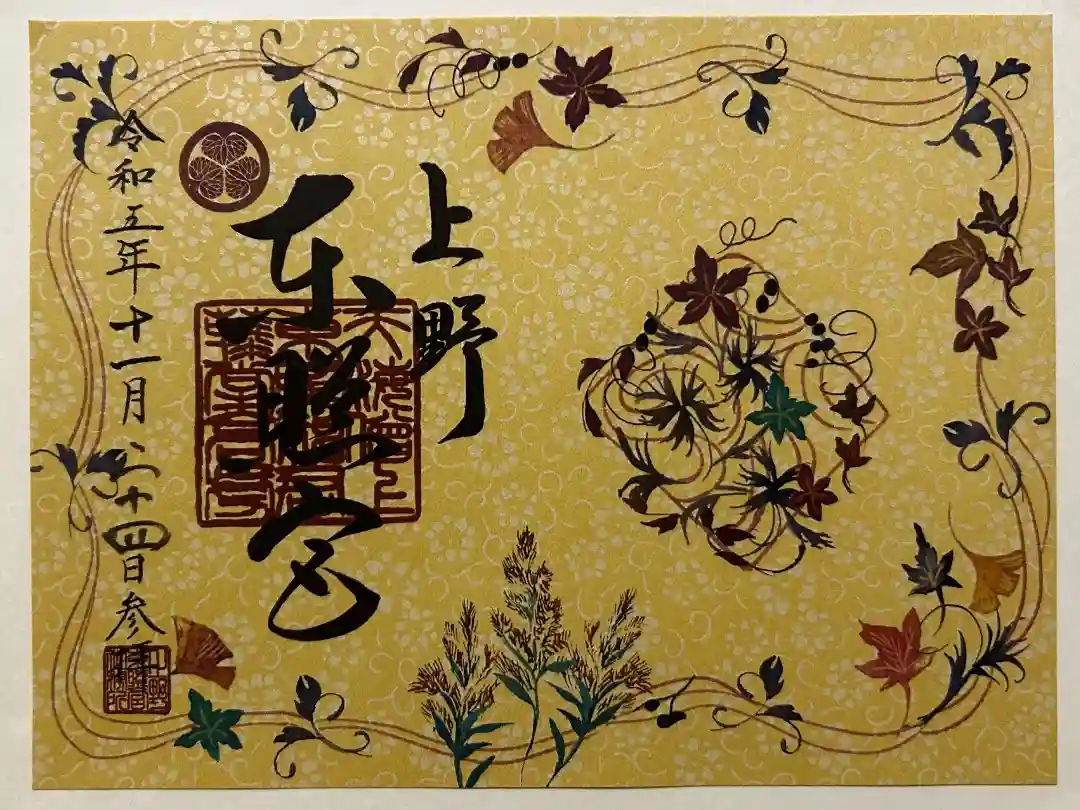 上野
東照宮
令和五年十一月二十四日参